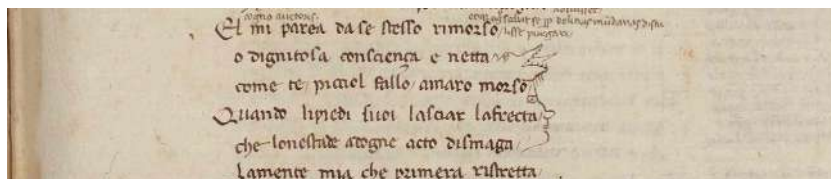 cogno auctoris.
El mi parea da se stesso rimorso
o dignitosa consciença e netta
come te picciol fallo amaro morso
Quando lipiedi suoi lasciar lafrecta
che lonestade adogne acto dismaga
Lamente mia che primera ristretta